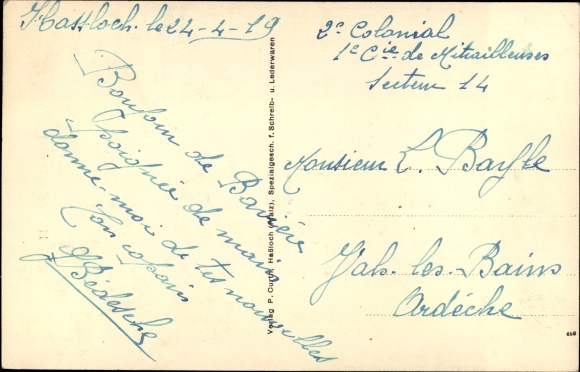 Hassloch le 24-4-19
Bonjour de Bavière
Poignée de mains
donne-moi de tes nouvelles
Ton copain
Verlag P. Curth, Haßloch (Pfalz), Spezialgesch. f. Schreib- u. Lederwaren
2e Colonial
1e Cie de Mitrailleuses
Secteur 14
Monsieur L. Bayle
Vals-les-Bains
Ardèche